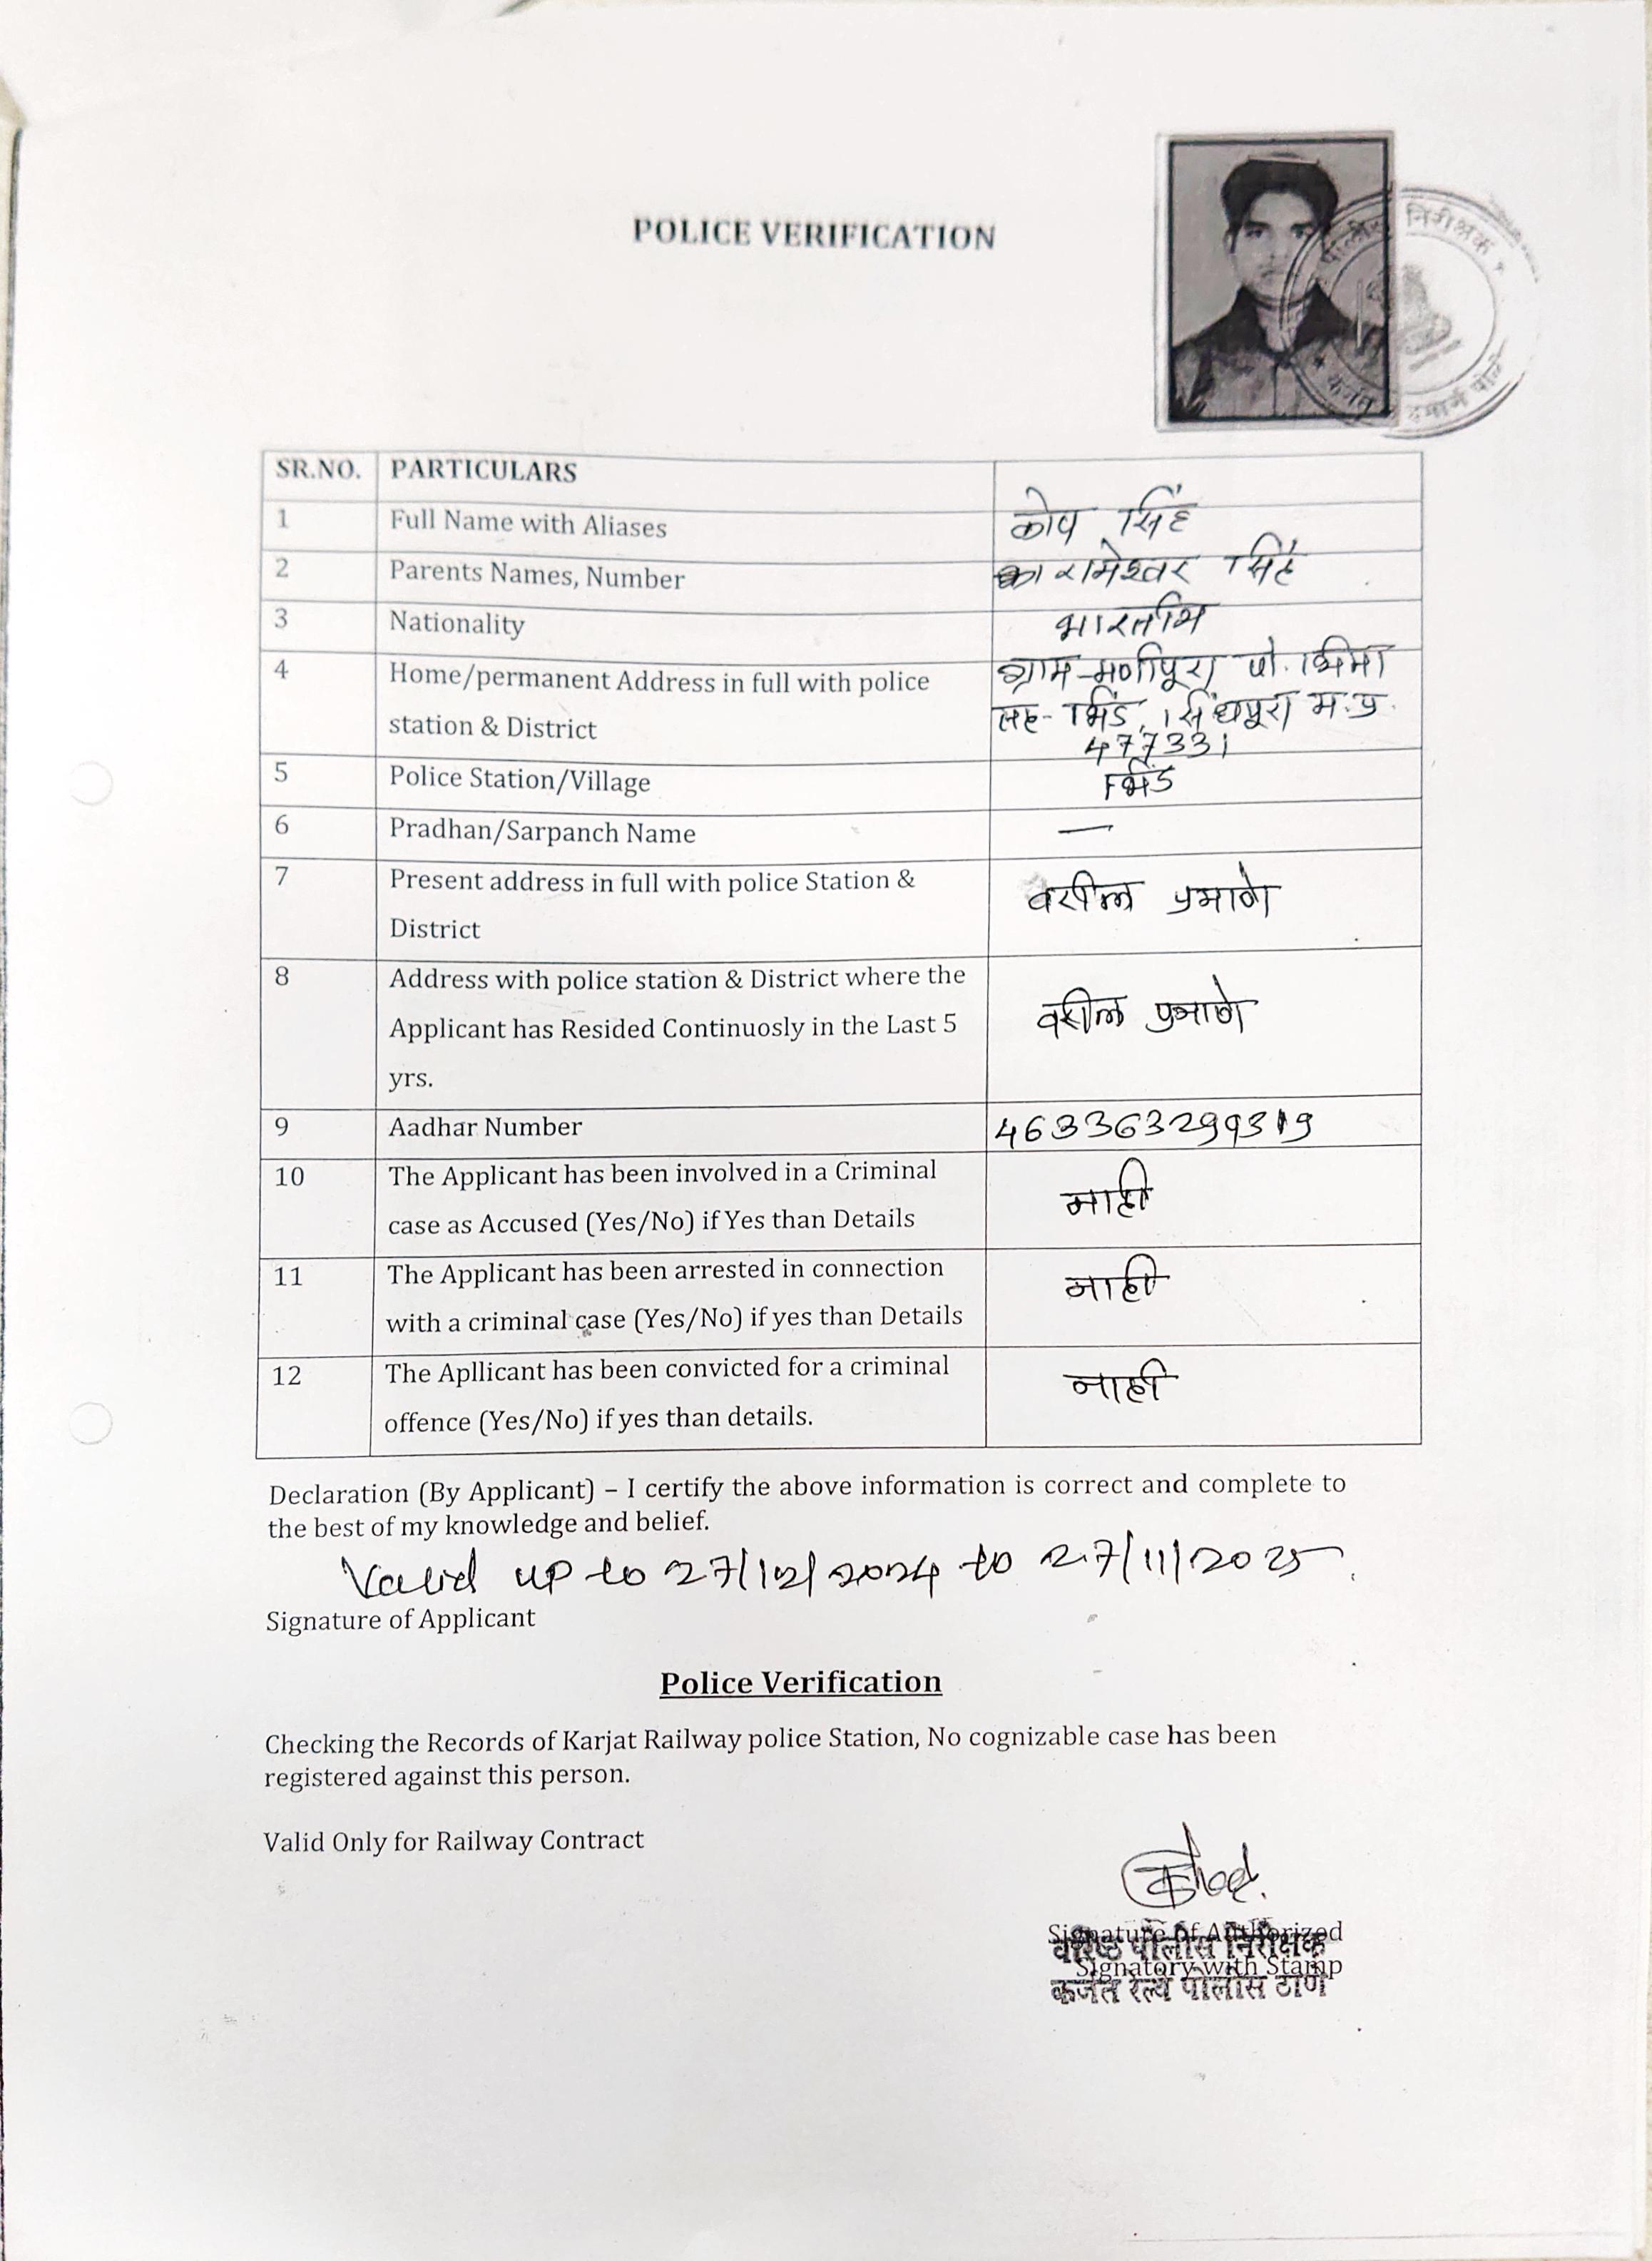 POLICE VERIFICATION
पोलीस निरीक्षक
कर्जत
SR.NO. PARTICULARS
1 Full Name with Aliases कोप सिंह
2 Parents Names, Number रामेश्वर सिंह
3 Nationality भारतीय
4 Home/permanent Address in full with police ग्राम-मणीपूरा पो.
station & District भिंड, सिंधपूरा म.प्र.
477331
5 Police Station/Village भिंड
6 Pradhan/Sarpanch Name —
7 Present address in full with police Station & वरील प्रमाणे
District
8 Address with police station & District where the
Applicant has Resided Continuosly in the Last 5 वरील प्रमाणे
yrs.
9 Aadhar Number 463363299319
10 The Applicant has been involved in a Criminal नाही
case as Accused (Yes/No) if Yes than Details
11 The Applicant has been arrested in connection नाही
with a criminal case (Yes/No) if yes than Details
12 The Apllicant has been convicted for a criminal नाही
offence (Yes/No) if yes than details.
Declaration (By Applicant) – I certify the above information is correct and complete to
the best of my knowledge and belief.
Valid up to 27/12/2024 to 27/11/2025
Signature of Applicant
Police Verification
Checking the Records of Karjat Railway police Station, No cognizable case has been
registered against this person.
Valid Only for Railway Contract
Signature of Authorized
वरिष्ठ पोलीस निरीक्षक
Signatory with Stamp
कर्जत रेल्वे पोलीस ठाणे